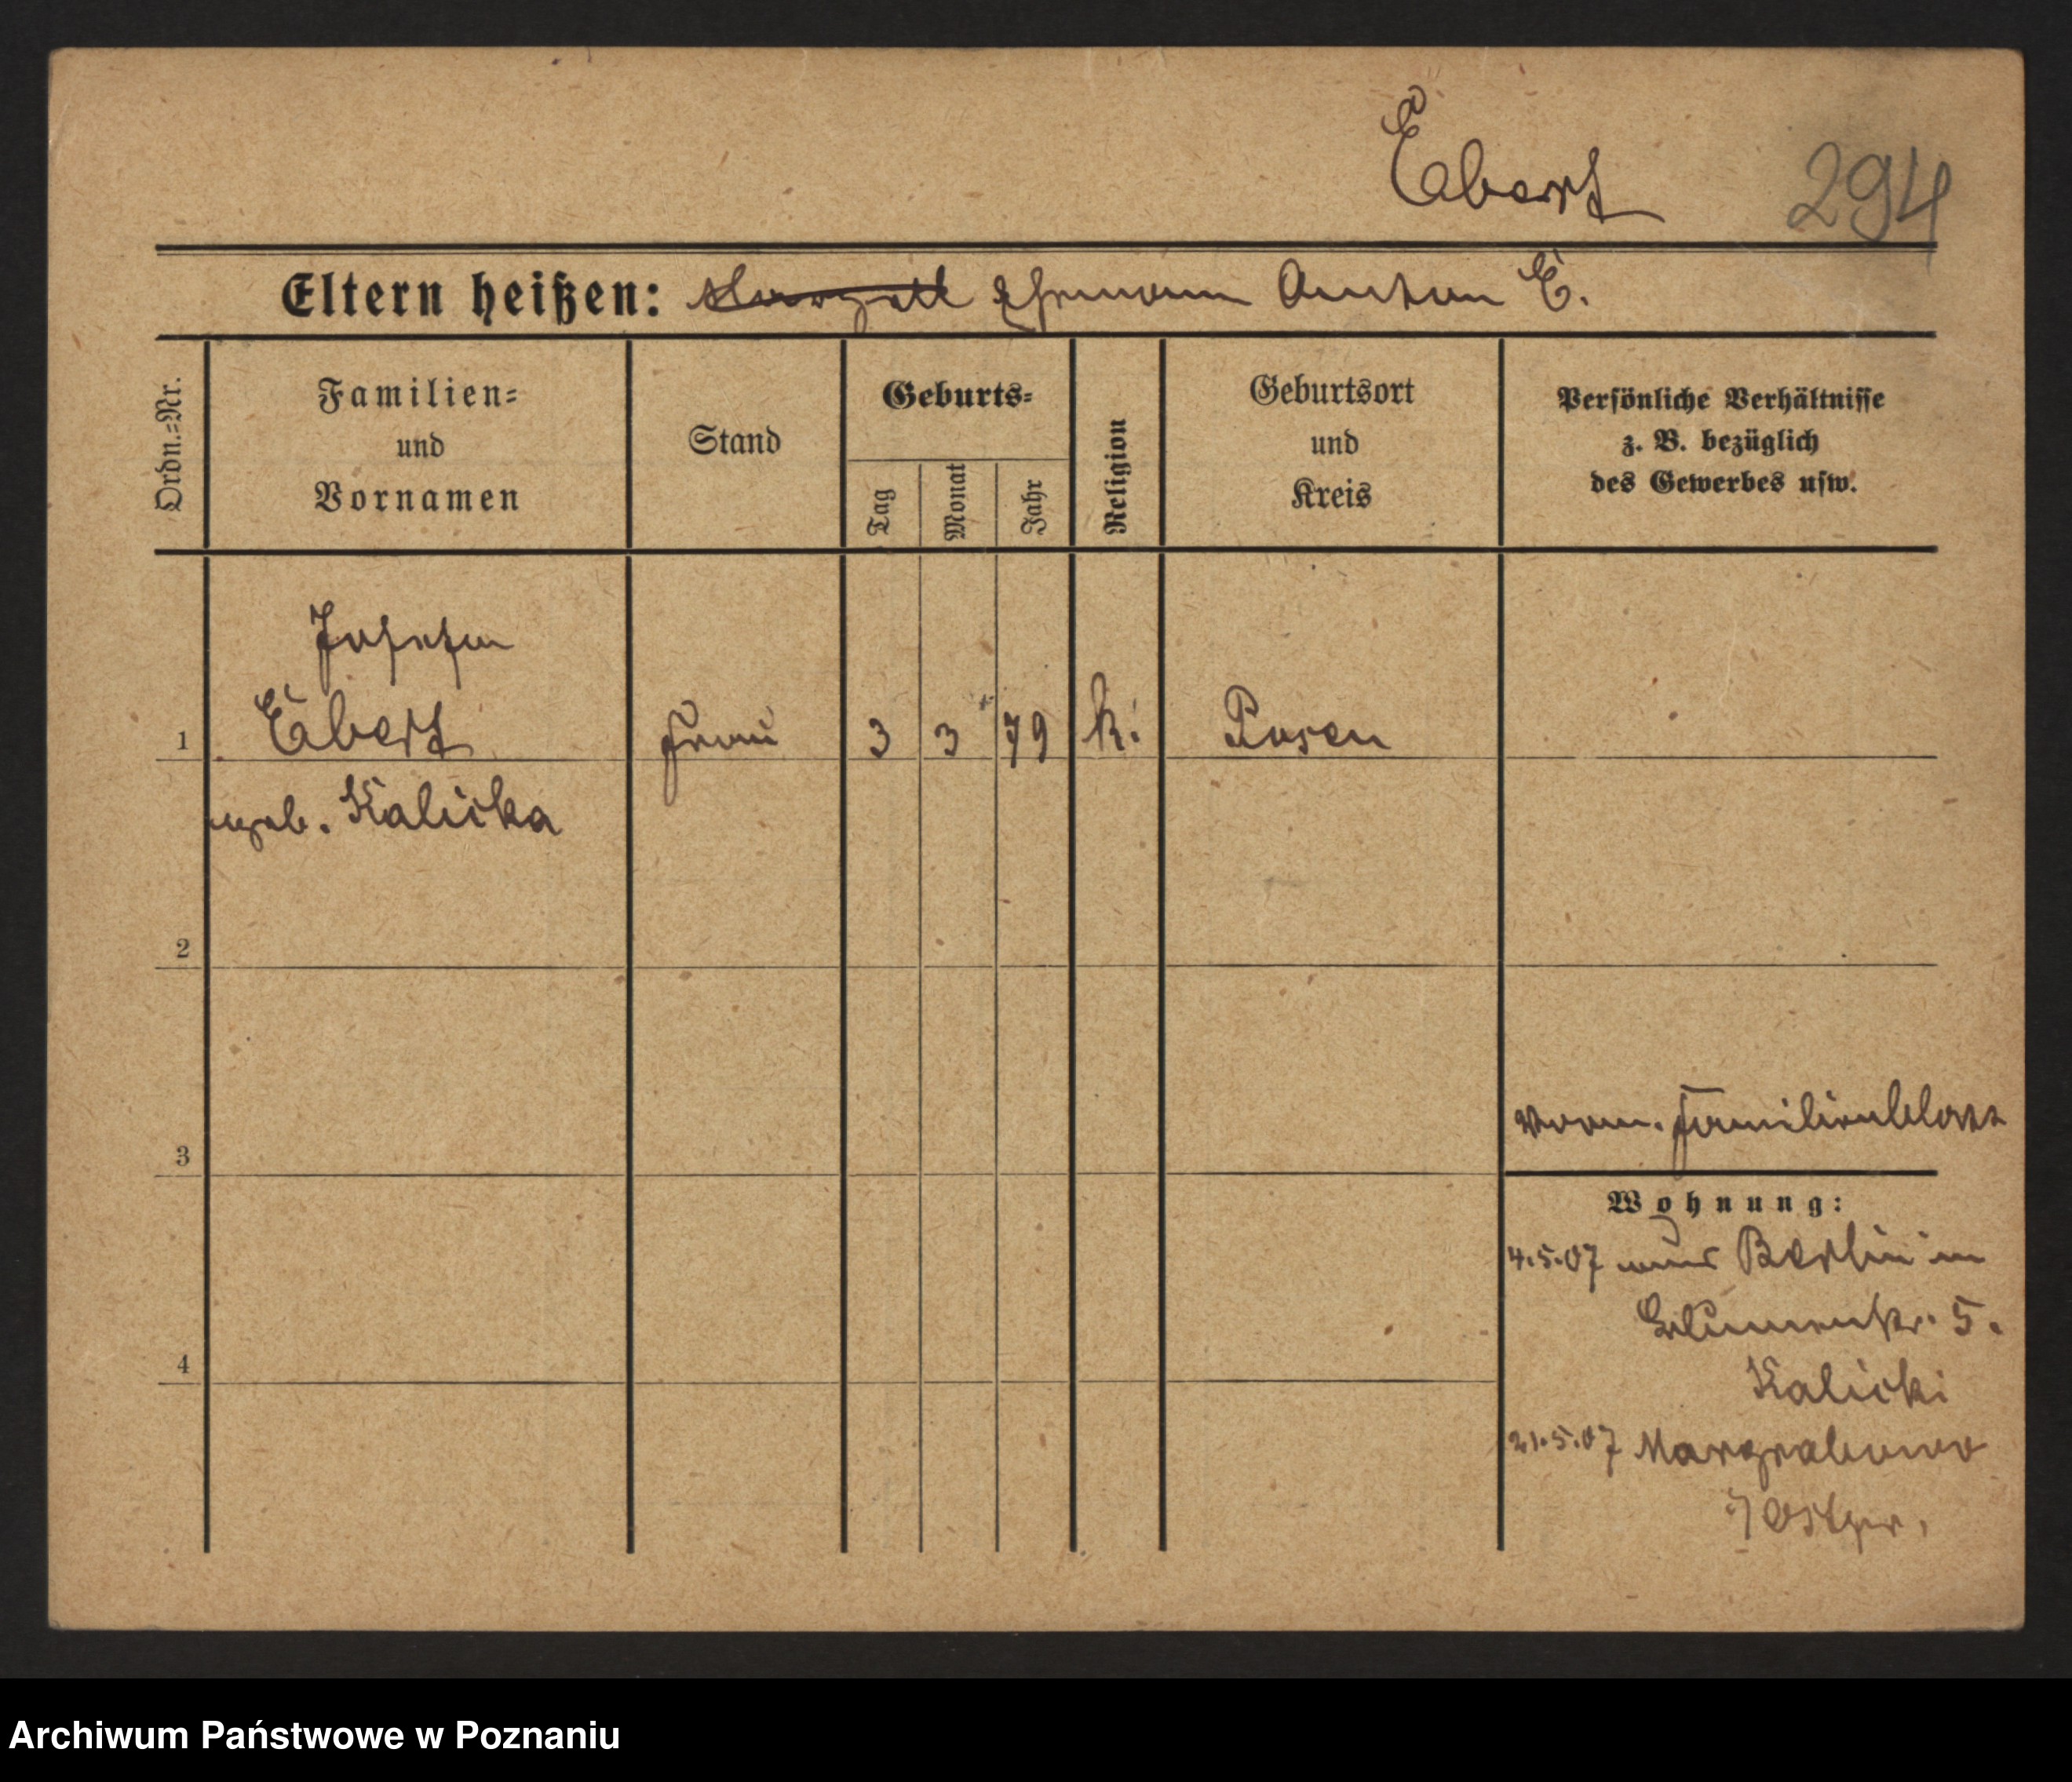 Ebert 294
Eltern heißen: Ehemann Anton E.
Ordn.=Nr.
Familien=
und
Vornamen
Stand
Geburts=
Tag
Monat
Jahr
Religion
Geburtsort
und
Kreis
Persönliche Verhältnisse
z. B. bezüglich
des Gewerbes usw.
Josefa
1 Ebert Frau 3 3 79 k. Posen
geb. Kalicka
2
3
Familienblatt
Wohnung:
4.5.07 aus Berlin in
Blumenstr. 5.
Kalicki
4
21.5.07 Margrabowo
Ostpr.
Archiwum Państwowe w Poznaniu